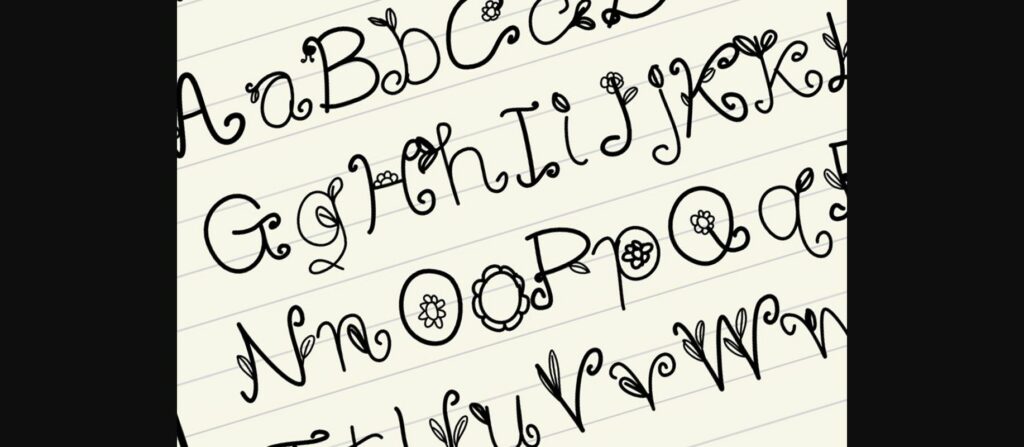 AaBbCc
GgHhIiJjKk
NnOoPpQq
UuVvWw